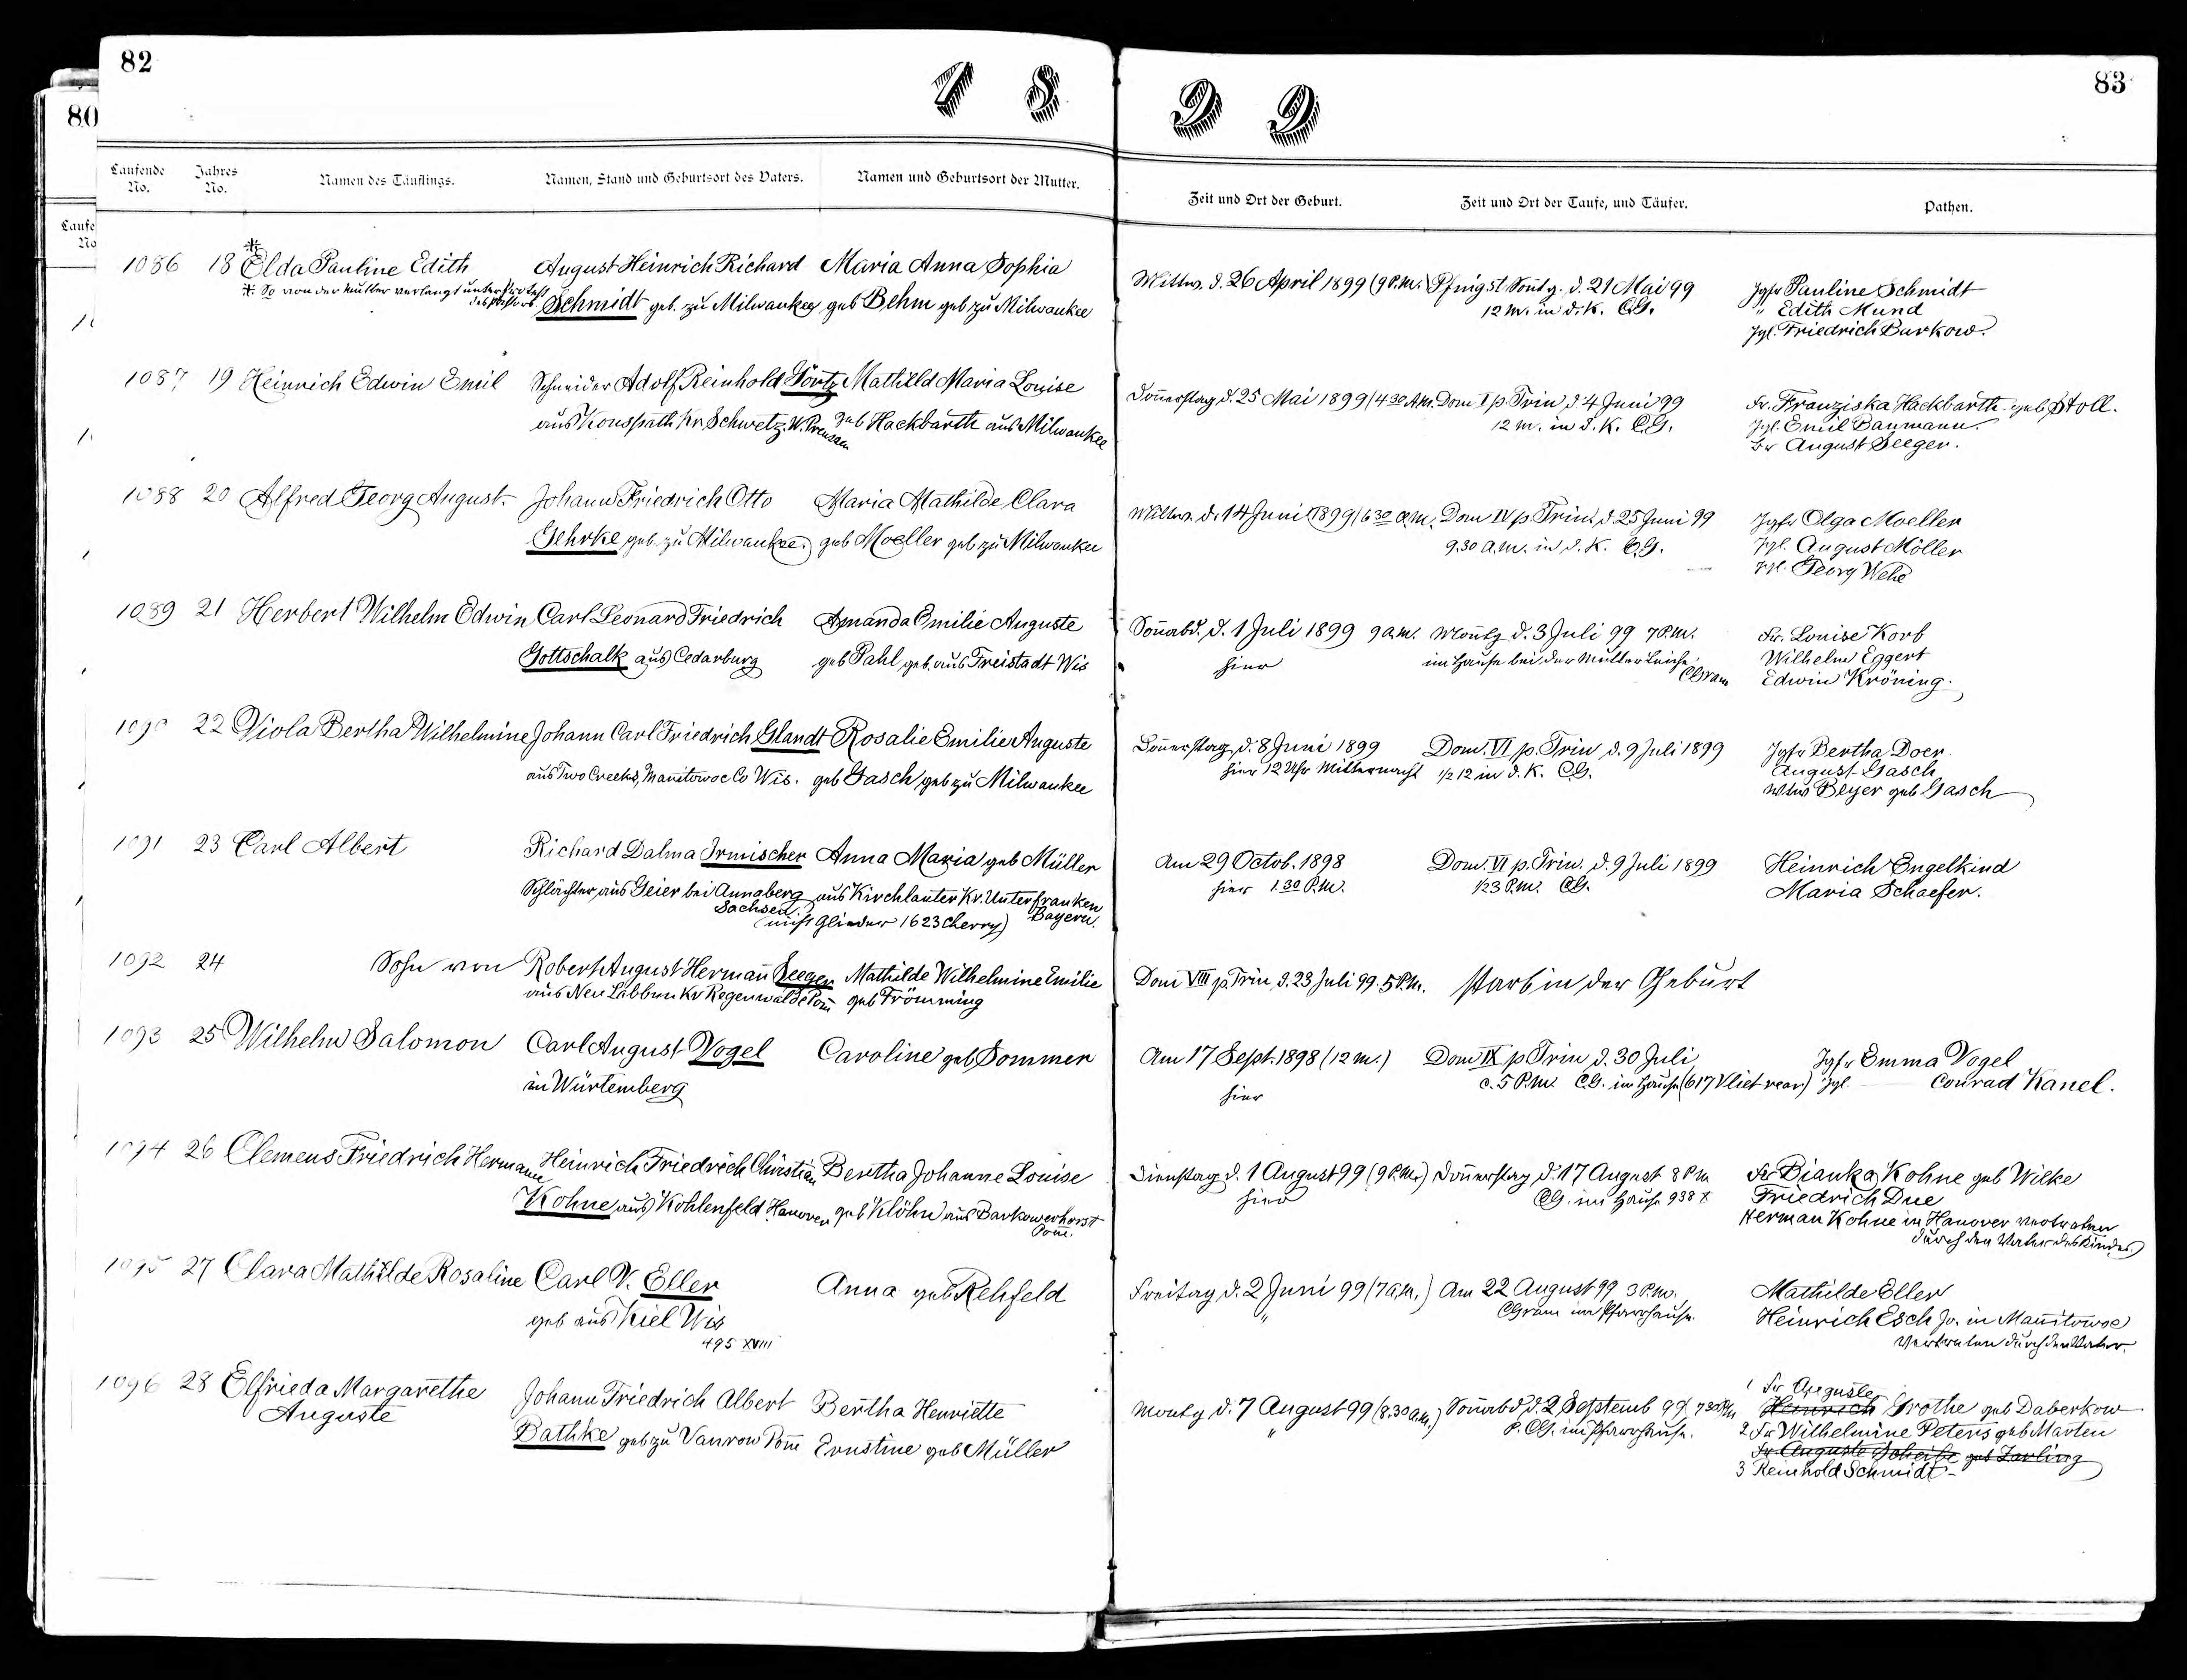 82
1 8 9 9
83
80
Laufende No.
Jahres No.
Namen des Täuflings.
Namen, Stand und Geburtsort des Vaters.
Namen und Geburtsort der Mutter.
Zeit und Ort der Geburt.
Zeit und Ort der Taufe, und Täufer.
Pathen.
Laufe
No
1086 18 * Elda Pauline Edith
* So von der Mutter verlangt unter Protest
des Pastors
August Heinrich Richard
Schmidt geb. zu Milwaukee
Maria Anna Sophia
geb Behm geb zu Milwaukee
Mittw. d. 26 April 1899 (9 P.M.)
Pfingst Sonntg. d. 21 Mai 99
12 M. in d. K. CG.
Jgfr Pauline Schmidt
" Edith Mund
Jgl. Friedrich Barkow.
1087 19 Heinrich Edwin Emil
Schneider Adolf Reinhold Görtz
aus Konspath Kr. Schwetz. W. Preussen
Mathild Maria Louise
geb Hackbarth aus Milwaukee
Donnerstag d. 25 Mai 1899 (4 30 A.M.
Dom I p Trin d. 4 Juni 99
12 M. in d. K. CG.
Fr. Franziska Hackbarth geb Stoll.
Jgl. Emil Baumann.
Hr August Seeger.
1088 20 Alfred Georg August
Johann Friedrich Otto
Gehrke geb. zu Milwaukee.
Maria Mathilde Clara
geb Moeller geb zu Milwaukee
Mittw. d. 14 Juni 1899 (6 30 A.M.
Dom IV p. Trin. d 25 Juni 99
9.30 A.M. in d. K. CG.
Jgfr Olga Moeller
Jgl. August Möller
Jgl. Georg Wehe
1089 21 Herbert Wilhelm Edwin
Carl Leonard Friedrich
Gottschalk aus Cedarburg
Amanda Emilie Auguste
geb Pahl geb. aus Freistadt Wis
Sonnabd. d. 1 Juli 1899 9 a.m.
hier
Montg d. 3 Juli 99 7 P.M.
im Hause bei der Mutter Leiche.
CGram
Fr. Louise Korb
Wilhelm Eggert
Edwin Kröning.
1090 22 Viola Bertha Wilhelmine
Johann Carl Friedrich Glandt
aus Two Creeks, Manitowoc Co Wis.
Rosalie Emilie Auguste
geb Gasch geb zu Milwaukee
Donnerstag d. 8 Juni 1899
hier 12 Uhr Mitternacht
Dom. VI p. Trin d. 9 Juli 1899
1/2 12 in d. K. CG.
Jgfr Bertha Doer
August Gasch
Wtw Beyer geb Gasch
1091 23 Carl Albert
Richard Dalma Irmischer
Schlächter, aus Geier bei Annaberg
Sachsen.
(nicht Glieder 1623 Cherry)
Anna Maria geb Müller
aus Kirchlauter Kr. Unterfranken
Bayern.
Am 29 Octob. 1898
hier 1.30 P.M.
Dom. VI p. Trin. d. 9 Juli 1899
1/2 3 P.M. CG.
Heinrich Engelkind
Maria Schaefer.
1092 24 Sohn von
Robert August Hermann Seeger
aus Neu Labbun Kr Regenwalde Pom
Mathilde Wilhelmine Emilie
geb Frömming
Dom VIII p. Trin d. 23 Juli 99. 5 P.M.
starb in der Geburt
1093 25 Wilhelm Salomon
Carl August Vogel
in Würtemberg
Caroline geb Sommer
Am 17 Sept. 1898 (12 M.)
hier
Dom IX p Trin d. 30 Juli
c. 5 P.M. CG. im Hause (617 Vliet rear)
Jgfr Emma Vogel
Jgl. Conrad Kanel.
1094 26 Clemens Friedrich Hermann
Heinrich Friedrich Christian
Kohne aus Kohlenfeld Hanover
Beretha Johanne Louise
geb Klöhn aus Barkowerhorst
Pom.
Dienstag d. 1 August 99 (9 P.M.)
hier
Donnerstag d. 17 August 8 P.M
CG. im Hause 938 X
Fr Bianka Kohne geb Wilke
Friedrich Due
Herman Kohne in Hanover vertreten
durch den Vater des Kindes
1095 27 Clara Mathilde Rosaline
Carl V. Eller
geb aus Kiel Wis
495 XVIII
Anna geb Rehfeld
Freitag d. 2 Juni 99 (7 a.M.)
"
Am 22 August 99 3 P.M.
CGram im Pfarrhause.
Mathilde Eller
Heinrich Esch Jr. in Mannitowoc
Vertreten durch den Vater.
1096 28 Elfrieda Margarethe
Auguste
Johann Friedrich Albert
Bathke geb zu Vanrow Pom
Bertha Henriette
Ernstine geb Müller
Montg d. 7 August 99 (8.30 a.m.)
"
Sonnabd d. 2 Septemb 99 7 30 P.M
P. CG. im Pfarrhause.
1 Fr Auguste
Heinrich Grothe geb Daberkow
2 Fr Wilhelmine Peters geb Marten
Fr Auguste Scheibe geb Zarling
3 Reinhold Schmidt